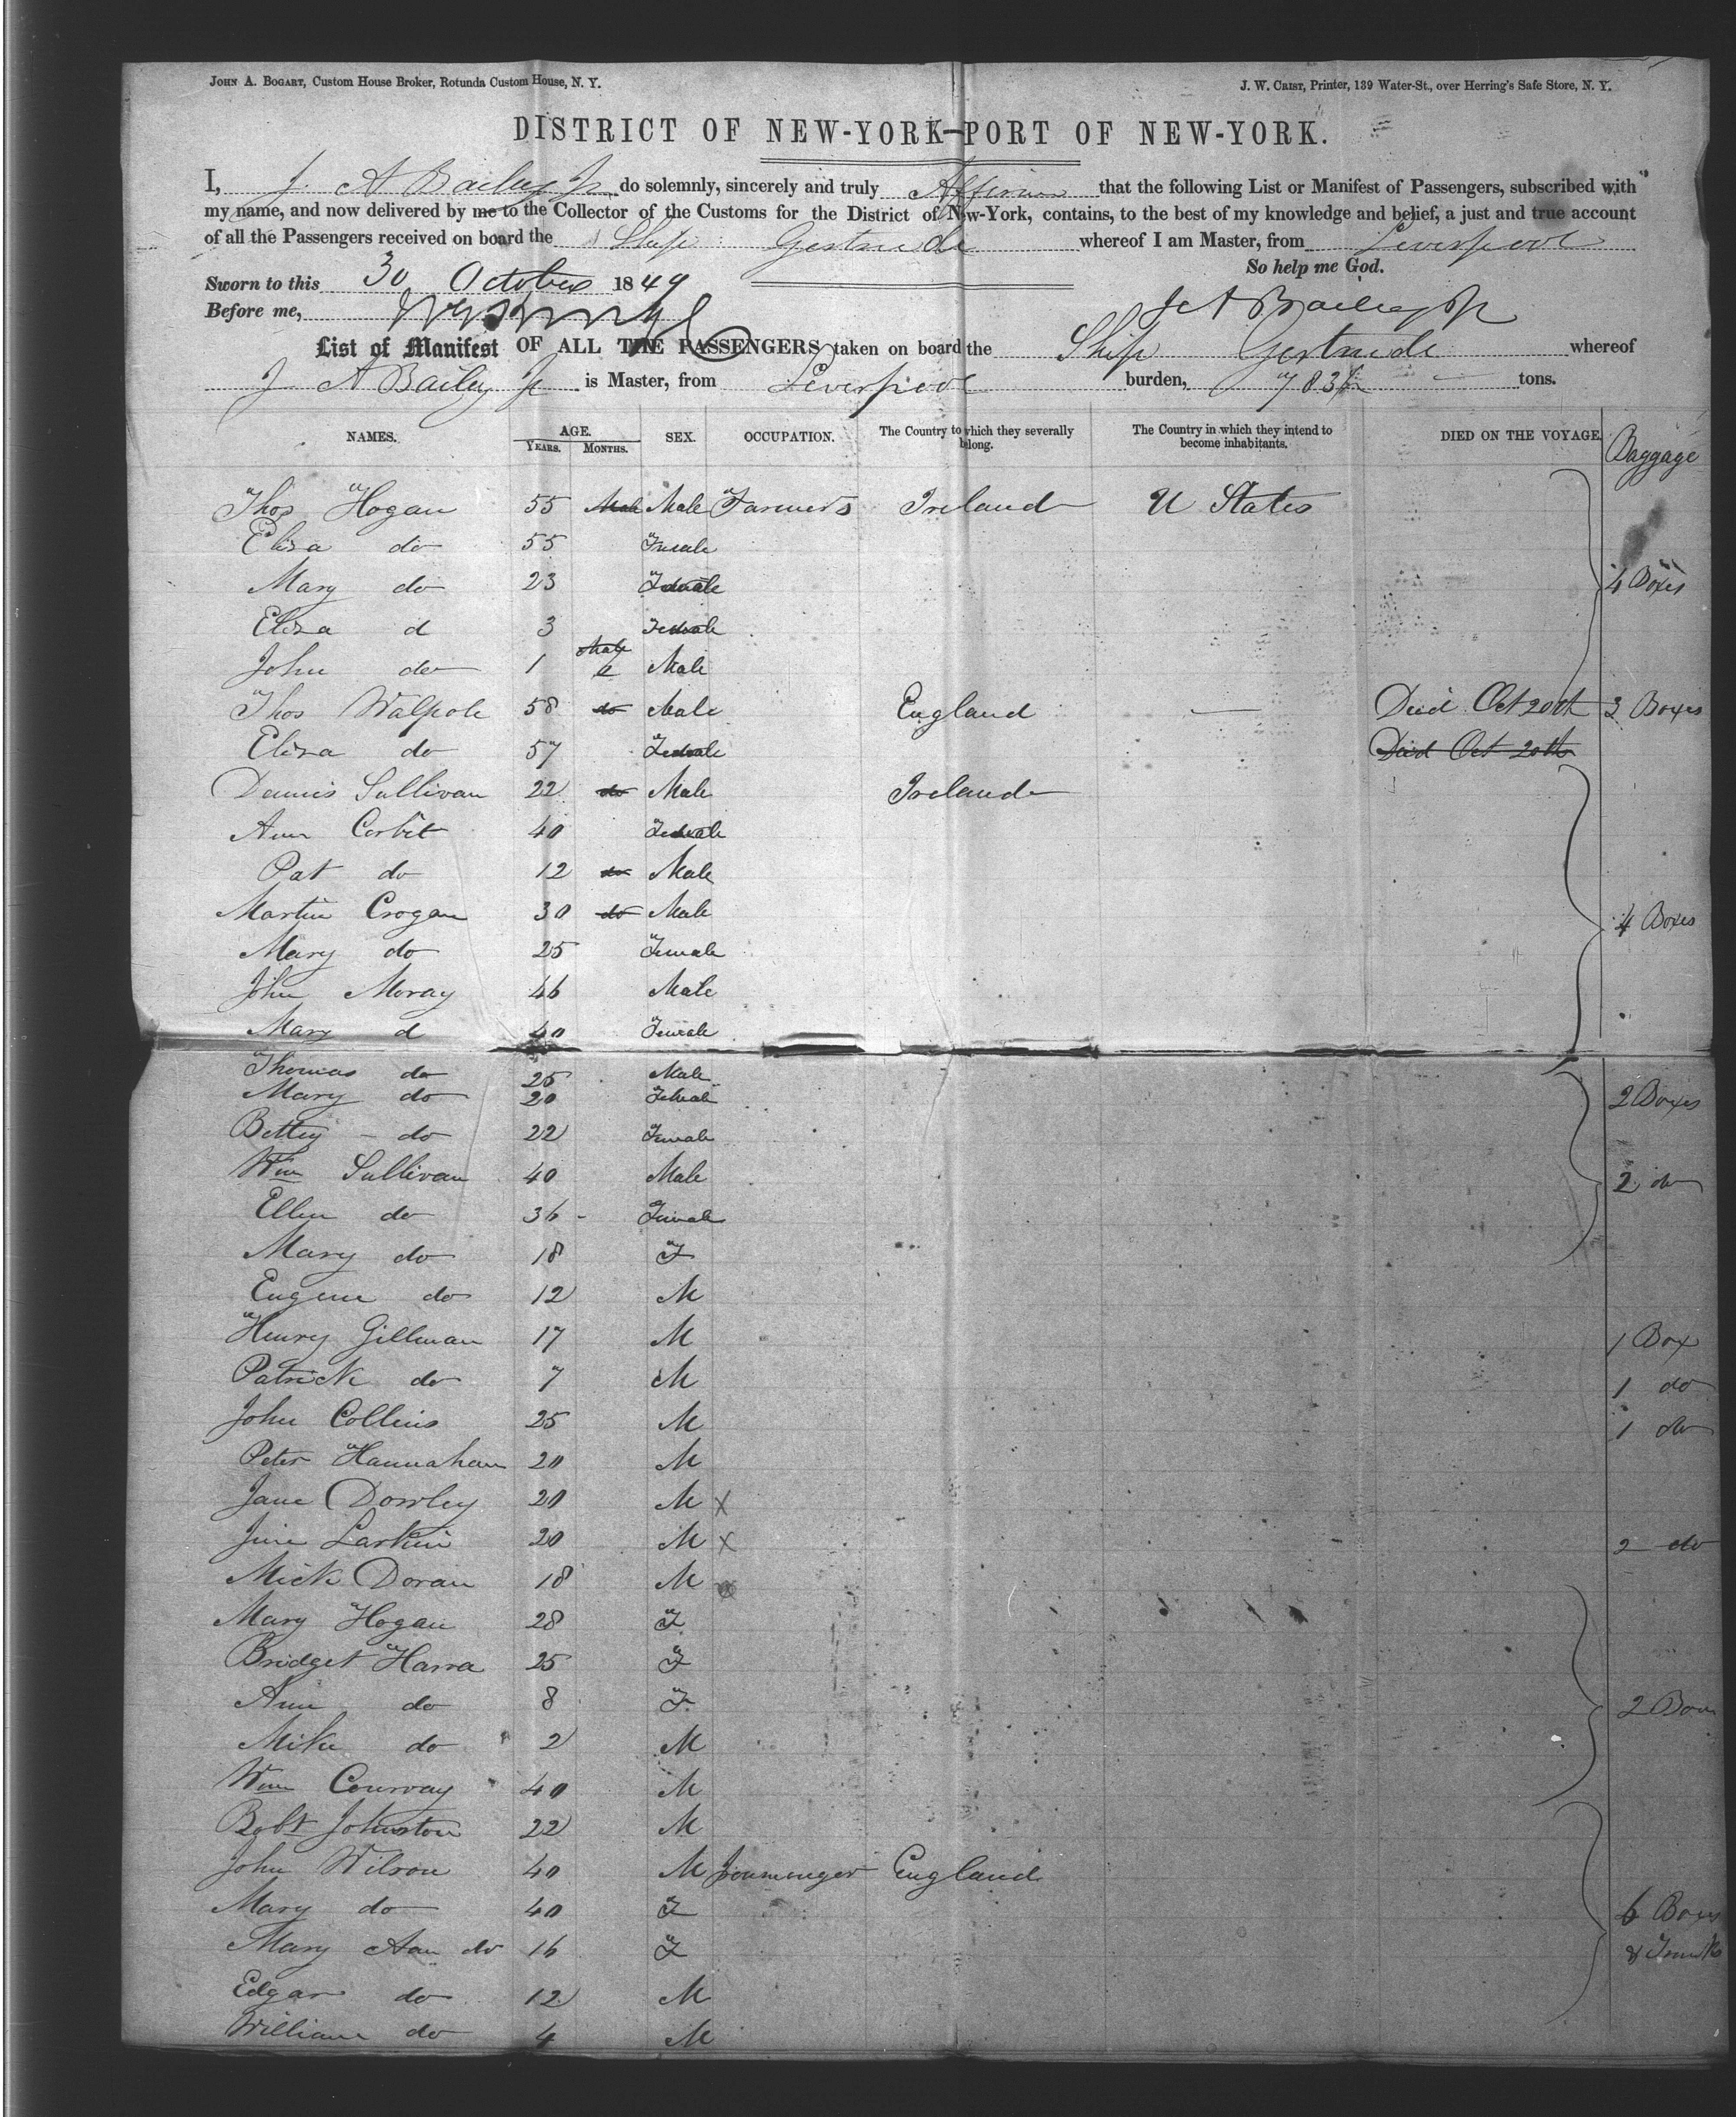 JOHN A. BOGART, Custom House Broker, Rotunda Custom House, N. Y. J. W. CRIST, Printer, 139 Water-St., over Herring's Safe Store, N. Y.
DISTRICT OF NEW-YORK—PORT OF NEW-YORK.
I, J. A Bailey Jr do solemnly, sincerely and truly Affirm that the following List or Manifest of Passengers, subscribed with
my name, and now delivered by me to the Collector of the Customs for the District of New-York, contains, to the best of my knowledge and belief, a just and true account
of all the Passengers received on board the Ship Gertrude whereof I am Master, from Liverpool
So help me God.
Sworn to this 30 October 1849
Before me, J A Bailey Jr
List of Manifest OF ALL THE PASSENGERS taken on board the Ship Gertrude whereof
J A Bailey Jr is Master, from Liverpool burden, 783 tons.
NAMES. AGE. YEARS. MONTHS. SEX. OCCUPATION. The Country to which they severally belong. The Country in which they intend to become inhabitants. DIED ON THE VOYAGE. Baggage
Thos Hogan 55 Male Male Farmers Ireland U States
Eliza do 55 Female
Mary do 23 Female 4 Boxes
Eliza d 3 Female
John do 1 Male Male
Thos Walpole 58 do Male England Died Oct 20th 3 Boxes
Eliza do 57 Female Died Oct 20th
Dennis Sullivan 22 do Male Ireland
Ann Corbit 40 Female
Pat do 12 do Male
Martin Crogan 30 do Male 4 Boxes
Mary do 25 Female
John Moray 46 Male
Mary d 40 Female
Thomas do 25 Male
Mary do 20 Female 2 Boxes
Bettey do 22 Female
Wm Sullivan 40 Male 2 do
Ellen do 36 Female
Mary do 18 F
Eugene do 12 M
Henry Gillman 17 M 1 Box
Patrick do 7 M 1 do
John Collins 25 M 1 do
Peter Hannahan 20 M
Jane Dowley 20 M X
Jine Larkin 20 M X 2 do
Mick Doran 18 M
Mary Hogan 28 F
Bridget Harra 25 F
Ann do 8 F 2 Boxes
Mike do 2 M
Wm Conway 40 M
Robt Johnston 22 M
John Wilson 40 M Ironmonger England
Mary do 40 F 6 Boxes
Mary Ann do 16 F & Trunks
Edgar do 12 M
William do 4 M